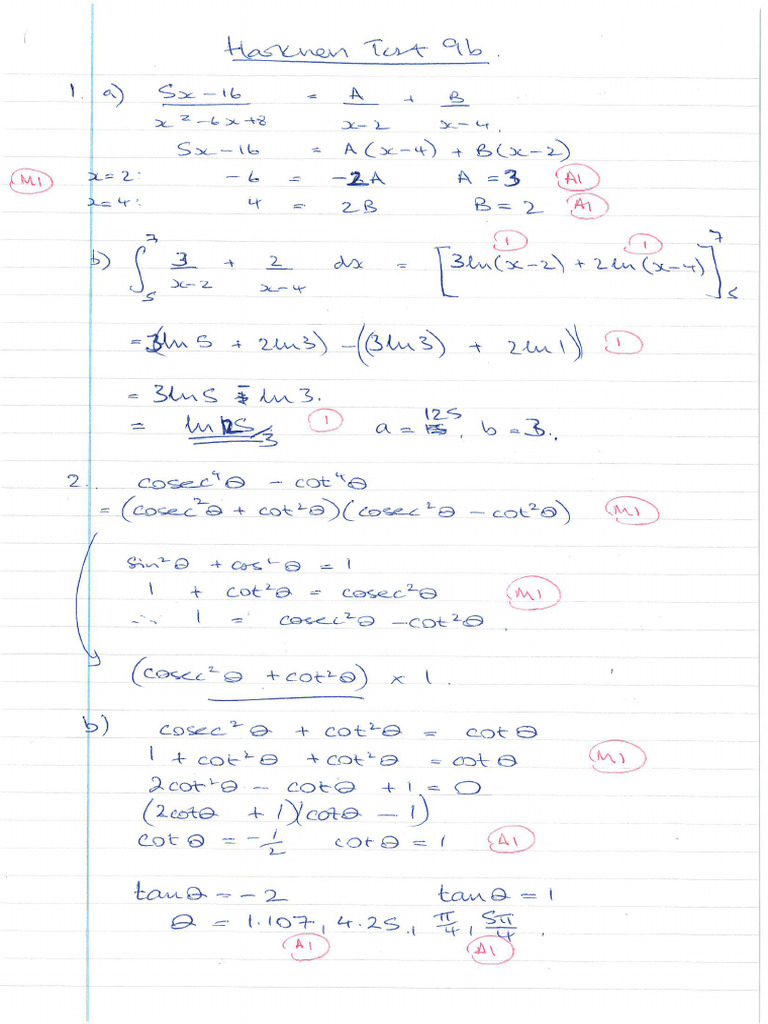 Harkness Test 9b.
1. a) 5x-16 / x²-6x+8 = A / x-2 + B / x-4.
5x-16 = A(x-4) + B(x-2)
M1 x=2: -6 = -2A A = 3 A1
x=4: 4 = 2B B = 2 A1
b) ∫₅⁷ 3 / x-2 + 2 / x-4 dx = [3ln(x-2) + 2ln(x-4)]₅⁷ 1 1
= (3ln5 + 2ln3) - ((3ln3) + 2ln1) 1
= 3ln5 - ln3.
= ln125/3 1 a = 125, b = 3.
2. cosec⁴θ - cot⁴θ
= (cosec²θ + cot²θ)(cosec²θ - cot²θ) M1
sin²θ + cos²θ = 1
1 + cot²θ = cosec²θ M1
∴ 1 = cosec²θ - cot²θ.
(cosec²θ + cot²θ) × 1.
b) cosec²θ + cot²θ = cotθ
1 + cot²θ + cot²θ = cotθ M1
2cot²θ - cotθ + 1 = 0
(2cotθ + 1)(cotθ - 1)
cotθ = -1/2 cotθ = 1 A1
tanθ = -2 tanθ = 1
θ = 1.107, 4.25, π/4, 5π/4.
A1 A1